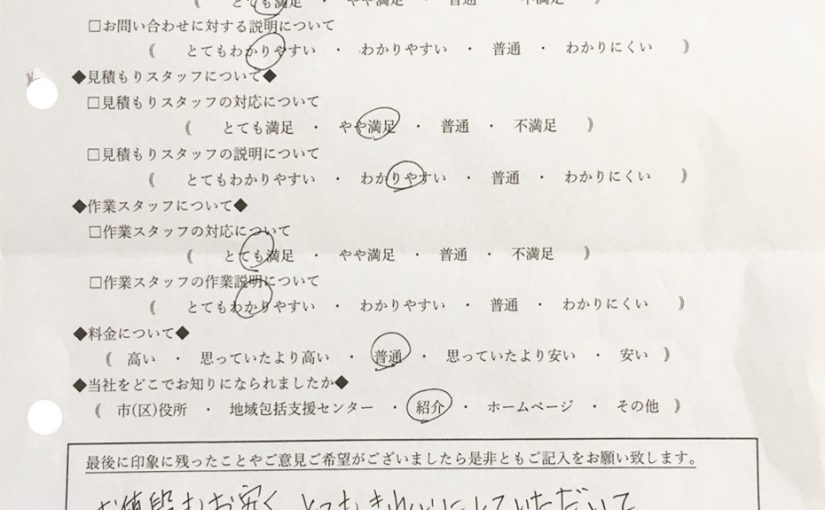 （ とても満足 ・ やや満足 ・ 普通 ・ 不満足 ）
□お問い合わせに対する説明について
（ とてもわかりやすい ・ わかりやすい ・ 普通 ・ わかりにくい ）
◆見積もりスタッフについて◆
□見積もりスタッフの対応について
（ とても満足 ・ やや満足 ・ 普通 ・ 不満足 ）
□見積もりスタッフの説明について
（ とてもわかりやすい ・ わかりやすい ・ 普通 ・ わかりにくい ）
◆作業スタッフについて◆
□作業スタッフの対応について
（ とても満足 ・ やや満足 ・ 普通 ・ 不満足 ）
□作業スタッフの作業説明について
（ とてもわかりやすい ・ わかりやすい ・ 普通 ・ わかりにくい ）
◆料金について◆
（ 高い ・ 思っていたより高い ・ 普通 ・ 思っていたより安い ・ 安い ）
◆当社をどこでお知りになられましたか◆
（ 市(区)役所 ・ 地域包括支援センター ・ 紹介 ・ ホームページ ・ その他 ）
最後に印象に残ったことやご意見ご希望がございましたら是非ともご記入をお願い致します。
お値段もお安く、とてもきれいにしていただいて